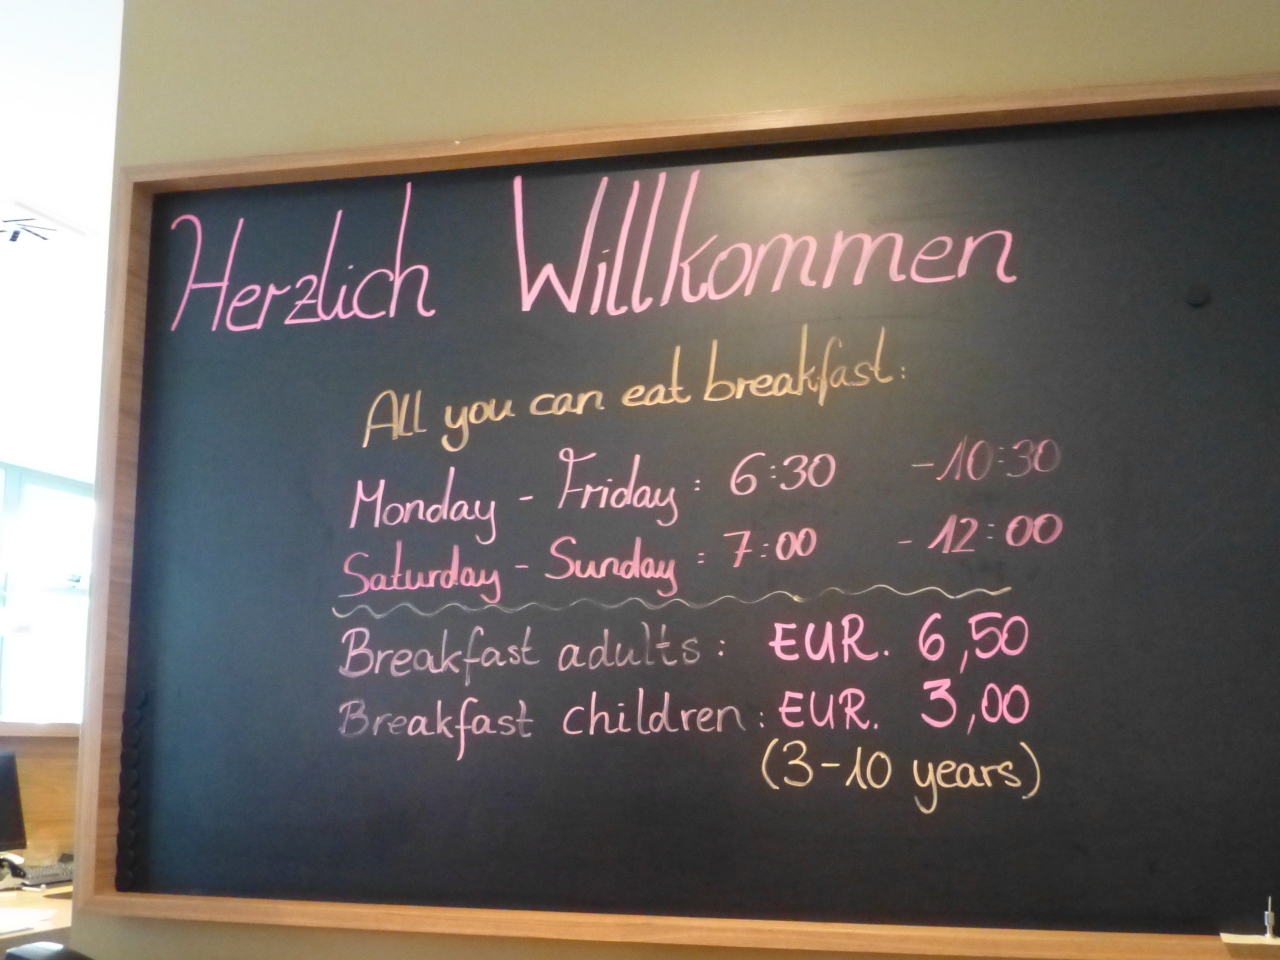 Herzlich Willkommen
All you can eat breakfast:
Monday - Friday: 6:30 - 10:30
Saturday - Sunday: 7:00 - 12:00
Breakfast adults: EUR. 6,50
Breakfast children: EUR. 3,00
(3-10 years)